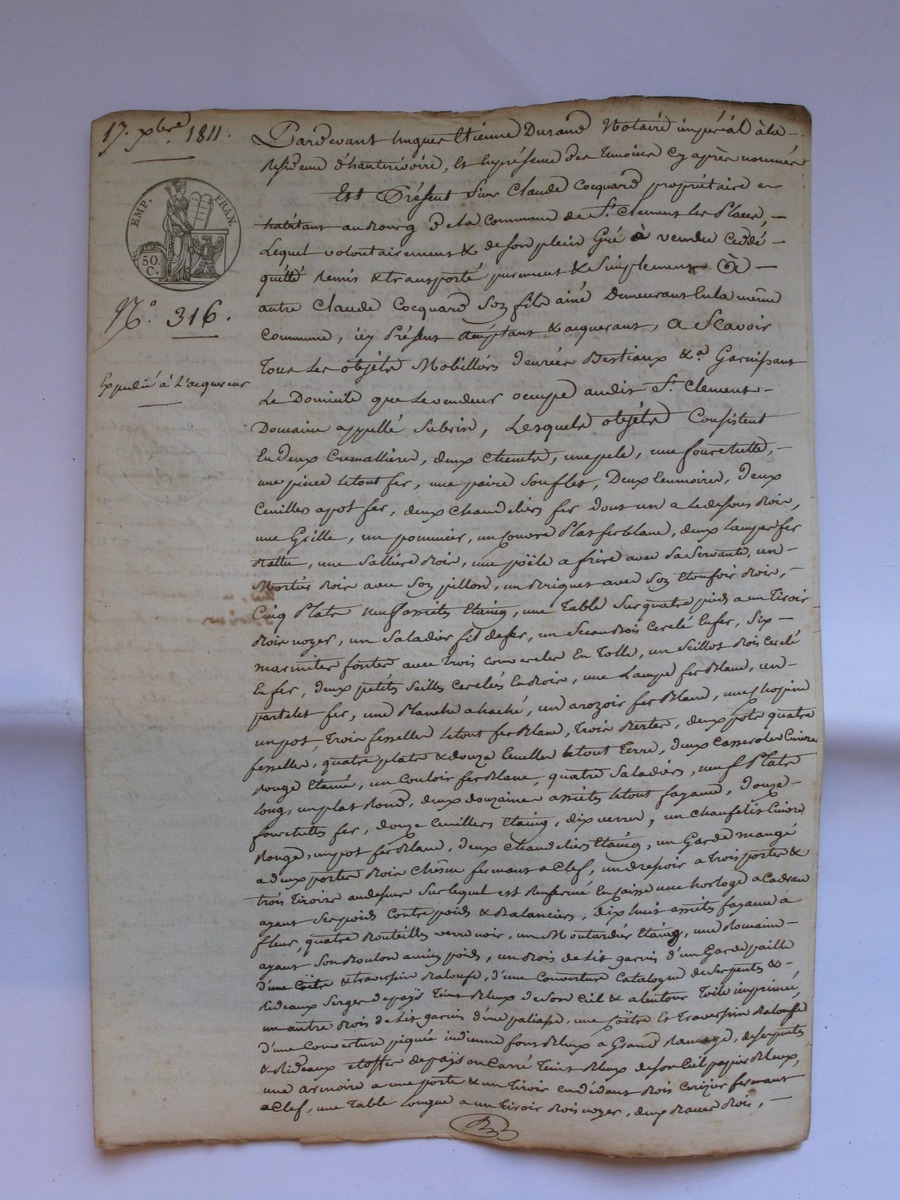 17. xbre 1811.
EMP. FRAN.
50. C.
N.° 316.
Expedié à L'acquereur
Pardevant hugues Etienne Durand Notaire impérial à la
Residence d'hauterivoire, Et En présence des temoins Cy après nommés
Est Présent Sieur Claude Cocquard propriétaire en
habitant au Bourg & de la Commune de St. Clement Les Places,
Lequel volontairement & de son plein Gré à vendu Cedé
quitté remis & transporté purement & Simplement à
autre Claude Cocquard Son fils ainé Demeurant En la même
Commune, icy Présent acceptant & acquerant, a Scavoir
Tous Les objéts Mobilliers denrées Bestiaux & a. Garnissant
Le Domaine que Le vendeur occupe audit St. Clement
Domaine appellé Subrin, Lesquels objéts Consistent
En deux Cremallieres, deux Chenets, une pele, une fourchette,
une pince Le tout fer, une paire Souflet, Deux Ecumoires, deux
Cuilleres a pot fer, deux Chandeliers fer dont un a Le dessous Bois,
une Grille, un pommier, un Couvre Plat fer blanc, deux Lampes fer
Battu, une Salliere Bois, une poële a frire avec Sa Servante, un
Mortier Bois avec Son pillon, un Briquet avec Son Etoufoir Bois,
Cinq Plats neuf assiettes Etaing, une Table Sur quatre pieds a un Tiroir
Bois noyer, un Saladier fil de fer, un Seau Bois Cerclé En fer, Six
marmites fontes avec trois couvercles En Tolle, un Seillot Bois Cerclé
En fer, deux petits Seilles Cerclés En Bois, une Lampe fer Blanc, un
partelet fer, une Planche a haché, un arozoir fer Blanc, une chopine
un pot, trois fesselles Le tout fer Blanc, Trois Bertes, deux pots quatre
fesselles, quatre plats & douze Ecuelles Le tout Terre, deux Casserolles Cuivre
Rouge Etamé, un Couloir fer Blanc, quatre Saladiers, neuf Plats
Long, un plat Rond, deux douzaines assiettes Le tout fayance, douze
fourchettes fer, douze Cuilleres Etaing, dix verres, un Chaufelit Cuivre
Rouge, un pot fer Blanc, deux Chandeliers Etaing, un Garde mangé
a deux portes Bois Chêne fermant a Clef, un dressoir a Trois portes &
trois Tiroirs au dessus Sur Lequel est Renfermé En Caisse une horloge a Cadran
ayant Ses poids Contre poids & Balanciers, dix huit assiettes fayance a
fleur, quatre Bouteilles verre noir, un Moutardier Etaing, une Romaine
ayant Son Boulon au moins poids, un Bois de Lit garni d'un Garde paille
d'une Coitre & traversin Baloufe, d'une Couverture Catalogne de Serpents &
Rideaux Serge de pays Teint Bleux de Son Ciel & alentour Toile imprimé,
un autre Bois de Lit garni d'une paliasse, une Coitre Et Traversin Baloufe
d'une Couverture piquée indienne fond Bleux a Grand Ramage, de Serpents
& Rideaux Etoffes de pays ou Carré Teint Bleux de Son Ciel papier Bleux,
une armoire a une porte & un Tiroir en dédant Bois Cerizier fermant
a Clef, une Table Longue a un Tiroir Bois noyer, deux Bancs Bois,